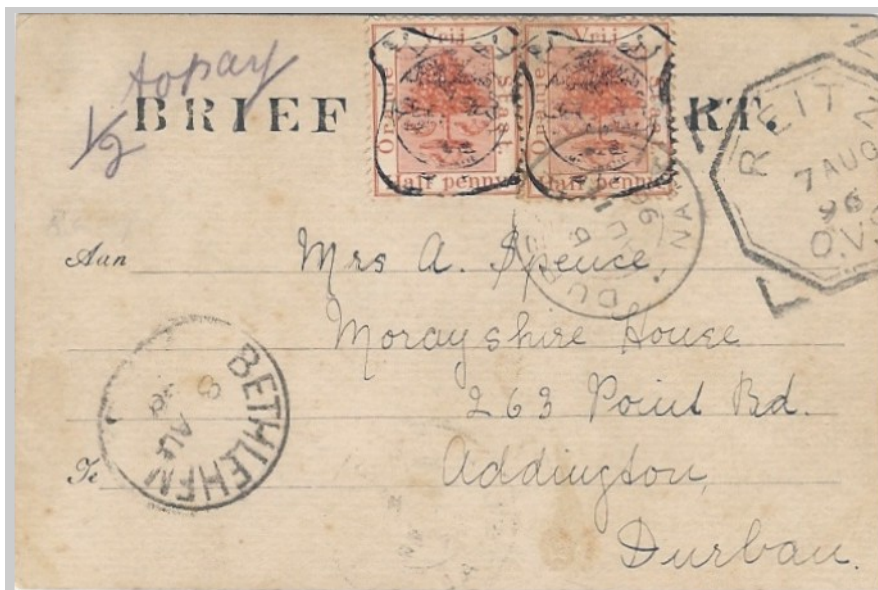 to pay
1/2
BRIEF RT.
Vrij
Oranje Staat
Half penny
Vrij
Oranje Staat
Half penny
REIT
7 AUG
96
O.V.S
DUR NA
96
Aan Mrs A. Spence
Morayshire House
263 Point Rd.
Te Addington,
Durban.
BETHLEHEM
AU